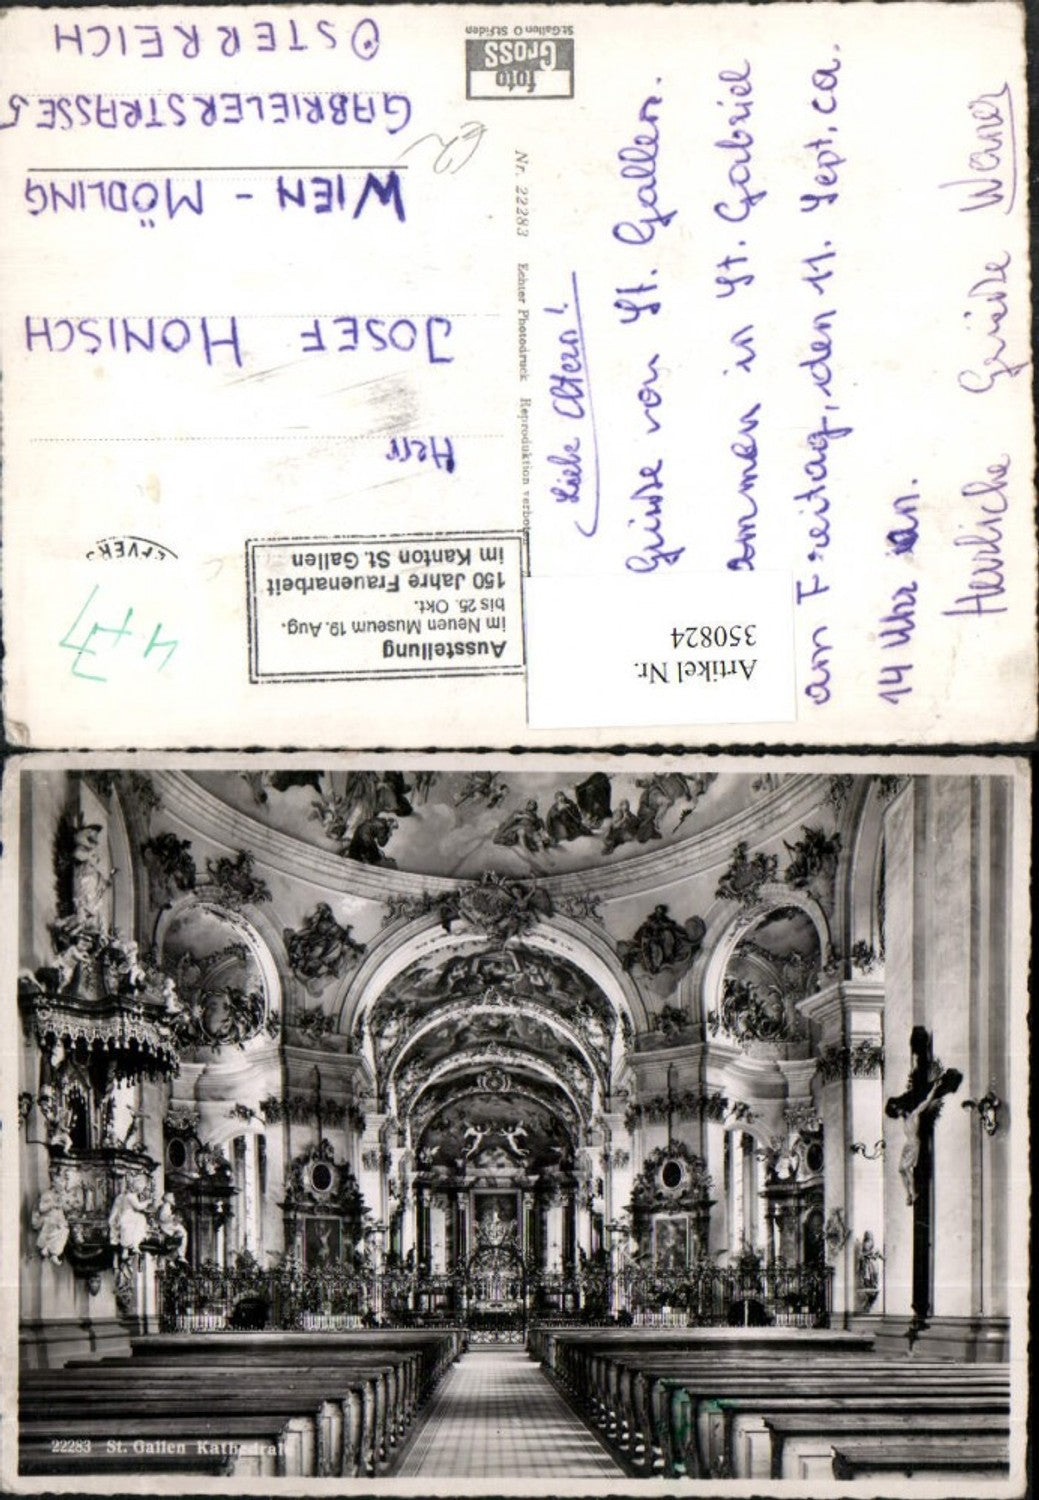 Liebe Eltern!
Grüße von St. Gallen.
kommen in St. Gabriel
am Freitag, den 11. Sept, ca.
14 Uhr an.
Herzliche Grüße Werner
Artikel Nr.
350824
Nr. 22283 Echter Photodruck Reproduktion verboten
foto
Gross
St.Gallen O St.Fiden
Ausstellung
im Neuen Museum 19. Aug.
bis 25. Okt.
150 Jahre Frauenarbeit
im Kanton St. Gallen
4+7
Herr
JOSEF HONISCH
WIEN - MÖDLING
GABRIELERSTRASSE 5
ÖSTERREICH
22283 St. Gallen Kathedrale